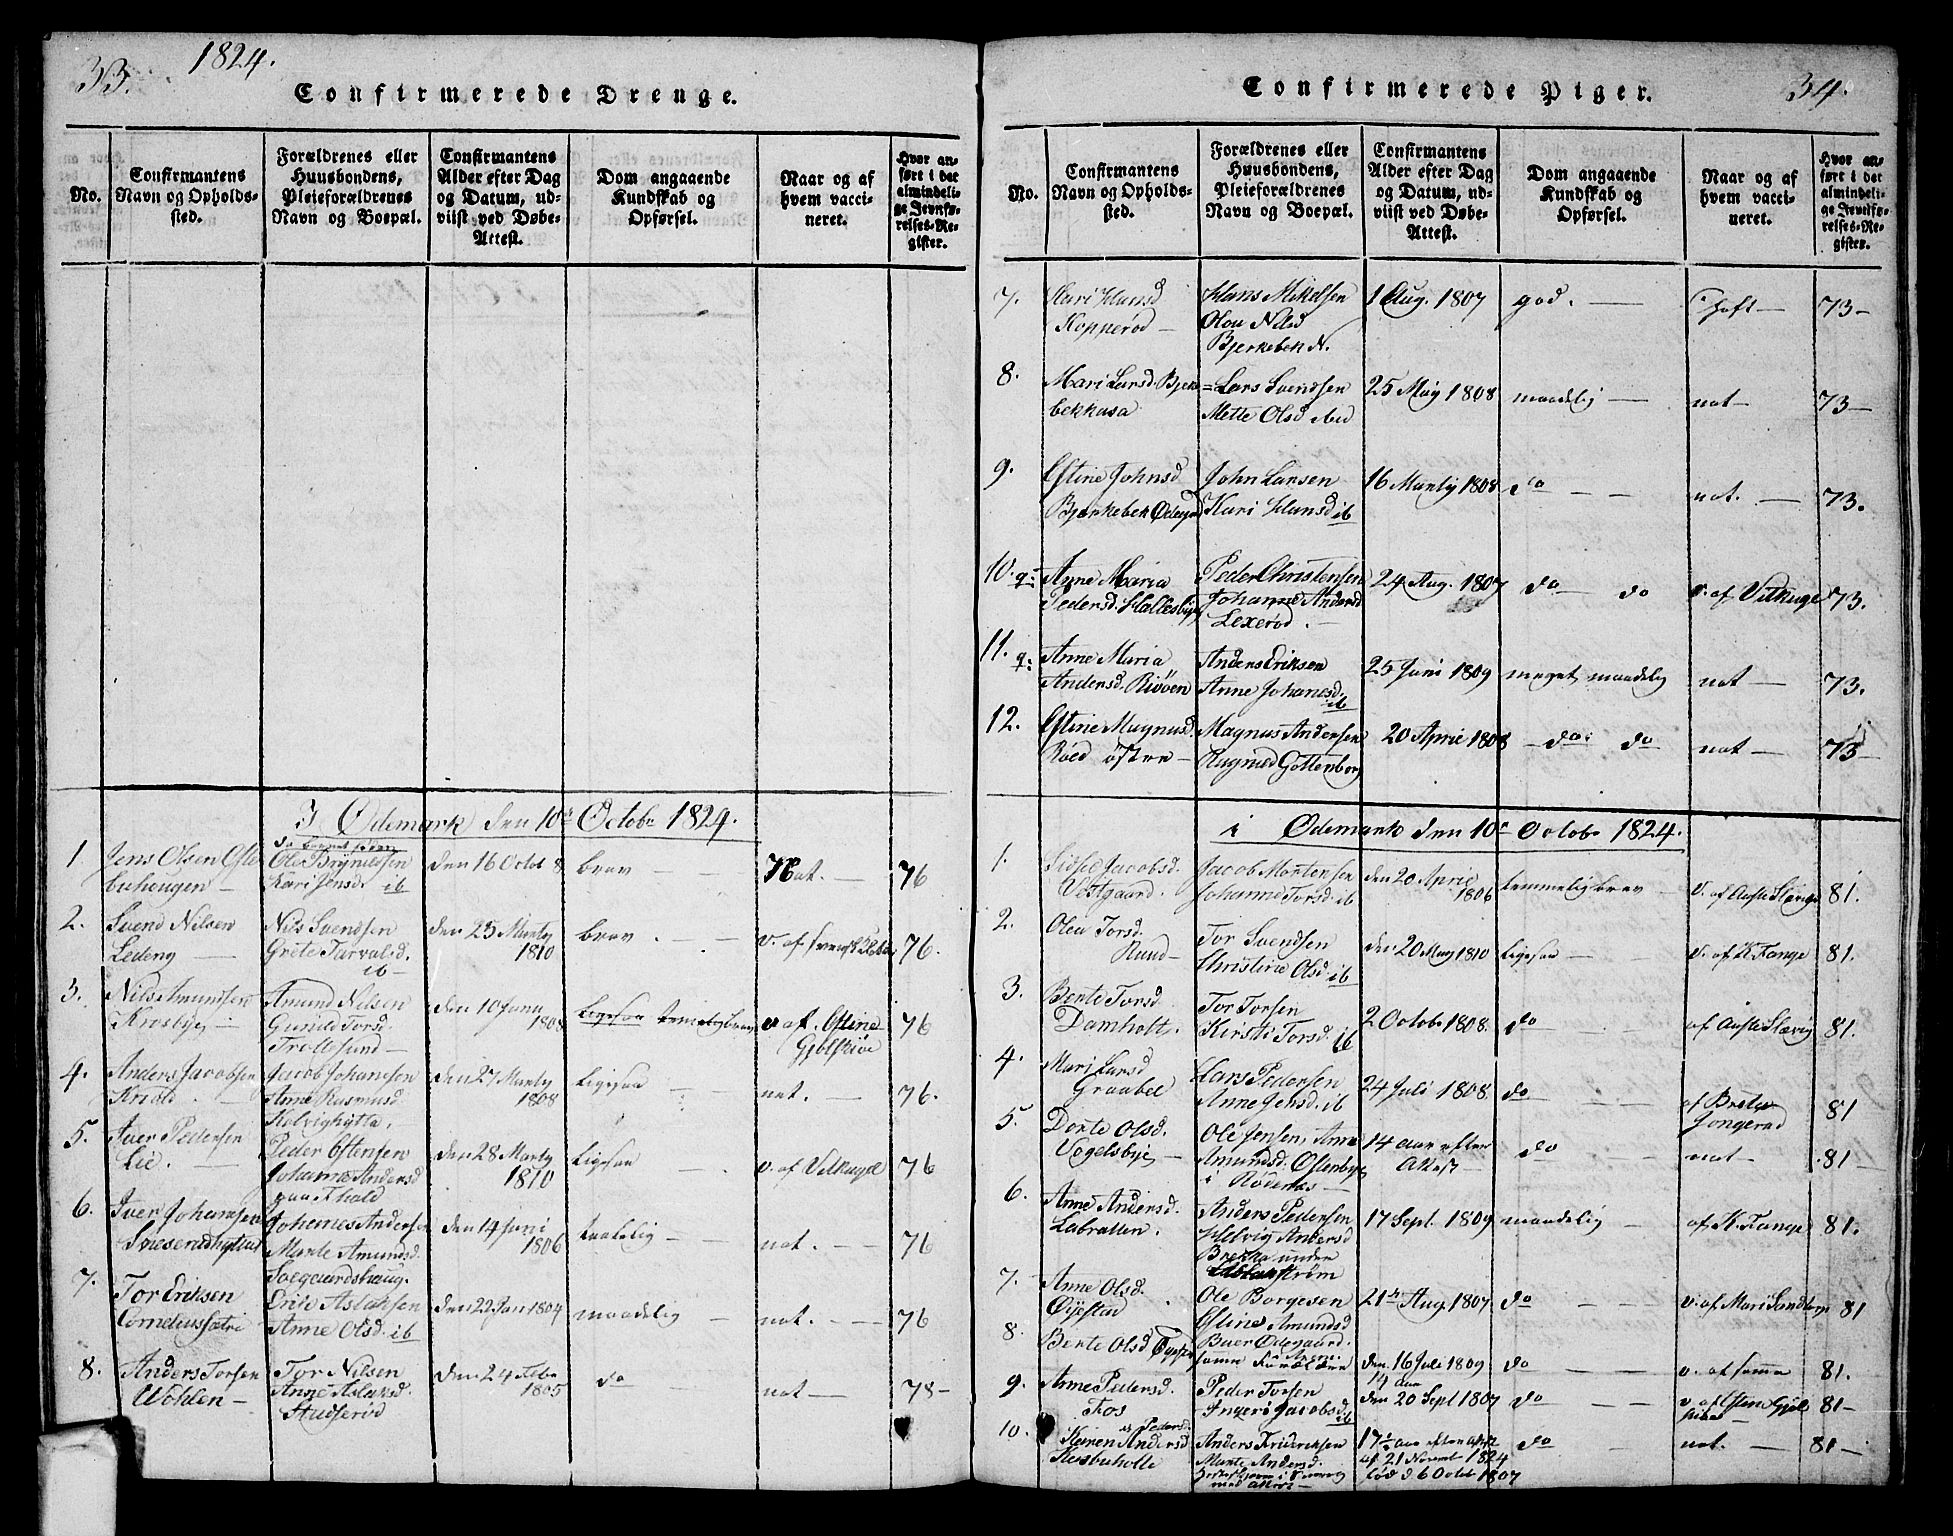 33.
1824.
Confirmerede Drenge.
No.
Confirmantens
Navn og Opholds-
sted.
Forældrenes eller
Huusbondens,
Pleieforældrenes
Navn og Boepæl.
Confirmantens
Alder efter Dag
og Datum, ud-
viist ved Døbe-
Attest.
Dom angaaende
Kundskab og
Opførsel.
Naar og af
hvem vacci-
neret.
Hvor an-
ført i det
almindeli-
ge Jevnfø-
relses-Re-
gister.
Ødemark den 10 Octobr 1824.
1 Jens Olsen Øste
buhougen — Ole Brynildsen
Kari Jensd. ib den 16 Octob 8 brav — — Nat. — 76
2. Svend Nilsen
Ledeng — Nils Svendsen
Grete Tarvalsd.
ib — den 25 Marty
1810 brav. — — v. af 76.
3. Nils Amundsen
Krosbye — Amund Nilsen
Gunild Torsd.
Trollesund — den 10 Janu
1808 ligesaa v af. Ostine
Gjølsiøe 76
4. Anders Jacobsen
Jacob Johansen
Anne Rasmusd.
Kolvighytta. den 27 Marty
1808 ligesaa — nat. — 76.
5. Iver Pedersen
Lie. — Peder Ostensen
Johanne Andersd
den 28 Marty
1810 Ligesaa — v. af Vilkugel 76
6. Iver Johansen
Johanes Andersen
Marte Amundsd.
Soegaardshaug. den 14 Juni
1806 taalelig — nat. — — 76
7. Tor Eriksen
Corneliussætri Erik Aslaksen
Anne Olsd. ib den 22 Jan 1804 maadelig — nat. — — 76
8. Anders Torsen
Wohlen — Tor Nilsen
Anne Aslaksd.
Studserød den 24 Febr
1805 do nat — 78 —
34.
Confirmerede Piger.
No.
Confirmantens
Navn og Opholds-
sted.
Forældrenes eller
Huusbondens,
Pleieforældrenes
Navn og Boepæl.
Confirmantens
Alder efter Dag
og Datum, ud-
viist ved Døbe-
Attest.
Dom angaaende
Kundskab og
Opførsel.
Naar og af
hvem vacci-
neret.
Hvor an-
ført i det
almindeli-
ge Jevnfø-
relses-Re-
gister.
7. Kari Hansd
Kopperød — Hans Mikelsen
Olou Nilsd
Bjerkebek N. 1 Aug. 1807 god. — 73 —
8. Mari Larsd. Bjerke=
bekkasa Lars Svendsen
Mette Olsd ibid 25 May 1808 maadelig — nat — 73 —
9. Estine Johnsd
Bjerkebek John Larsen
Kari Hansd ib 16 Marty 1808 do — — nat. — 73.
10. q: Anne Maria
Pedersd. Hallesbye Peder Christensen
Johanne Andersd
Lexerød. — 24 Aug. 1807 do do v. af Vilkuge 73.
11. q: Anne Maria
Andersd. Riiøen Anders Eriksen
Anne Johanesd.
ib 25 Juni 1809 meget maadelig nat — 73.
12. Estine Magnusd.
Røed østre — Magnus Andersen
Ragnild Gottenborg 20 April 1808 — do: do nat — 73 —
i Ødemark den 10 Octobr 1824.
1. Sidsel Jacobsd.
Vestgaard. Jacob Mortensen
Johanne Torsd. ib den 20 April
1806 temmelig brav — v. af 81.
2. Olea Torsd.
Ruud — Tor Svendsen
Christine Olsd. ib den 20 May 1810 Ligesaa — v. af K. Tange 81.
3. Berte Torsd.
Damholt. Tor Torsen
Kirsti Torsd. ib 2 Octobr 1808. do — af 81.
4. Mari Larsd
Graabøl Lars Pedersen
Anne Jensd. ib 24 Juli 1808. do — — af
Gongerød 81
5. Dorte Olsd.
Vogelsbye — Ole Jensen, Anne
Amundsd. Ostenbye
i Rødenæs — 14 aar efter
Attest do — — nat — 81 —
6. Anne Andersd.
Labratten. Anders Pedersen
Helvig Andersd
Brekka under
17 Sept. 1809 maadelig — af K. Tange 81.
7. Anne Olsd.
Øiestad Ole Børgesen
Estine Amundsd
Buer Ødegaard. 21de Aug. 1807 do — — v. af Mari 81
8. Berte Olsd
samme Forældre den 16 Juli 1809 do — — v. af samme 81.
9. Anne Pedersd.
Fos Peder Torsen
Ingerø Jacobsd.
ib 14 Aar
den 20 Sept 1807 do — — v. af 81 —
10. Karen Andersd
Anders Fridriksen
Marte Andersd.
17 aar efter
af 21 Novemt 1824
fød d 6 Octob 1807 do — nat. — 81 —